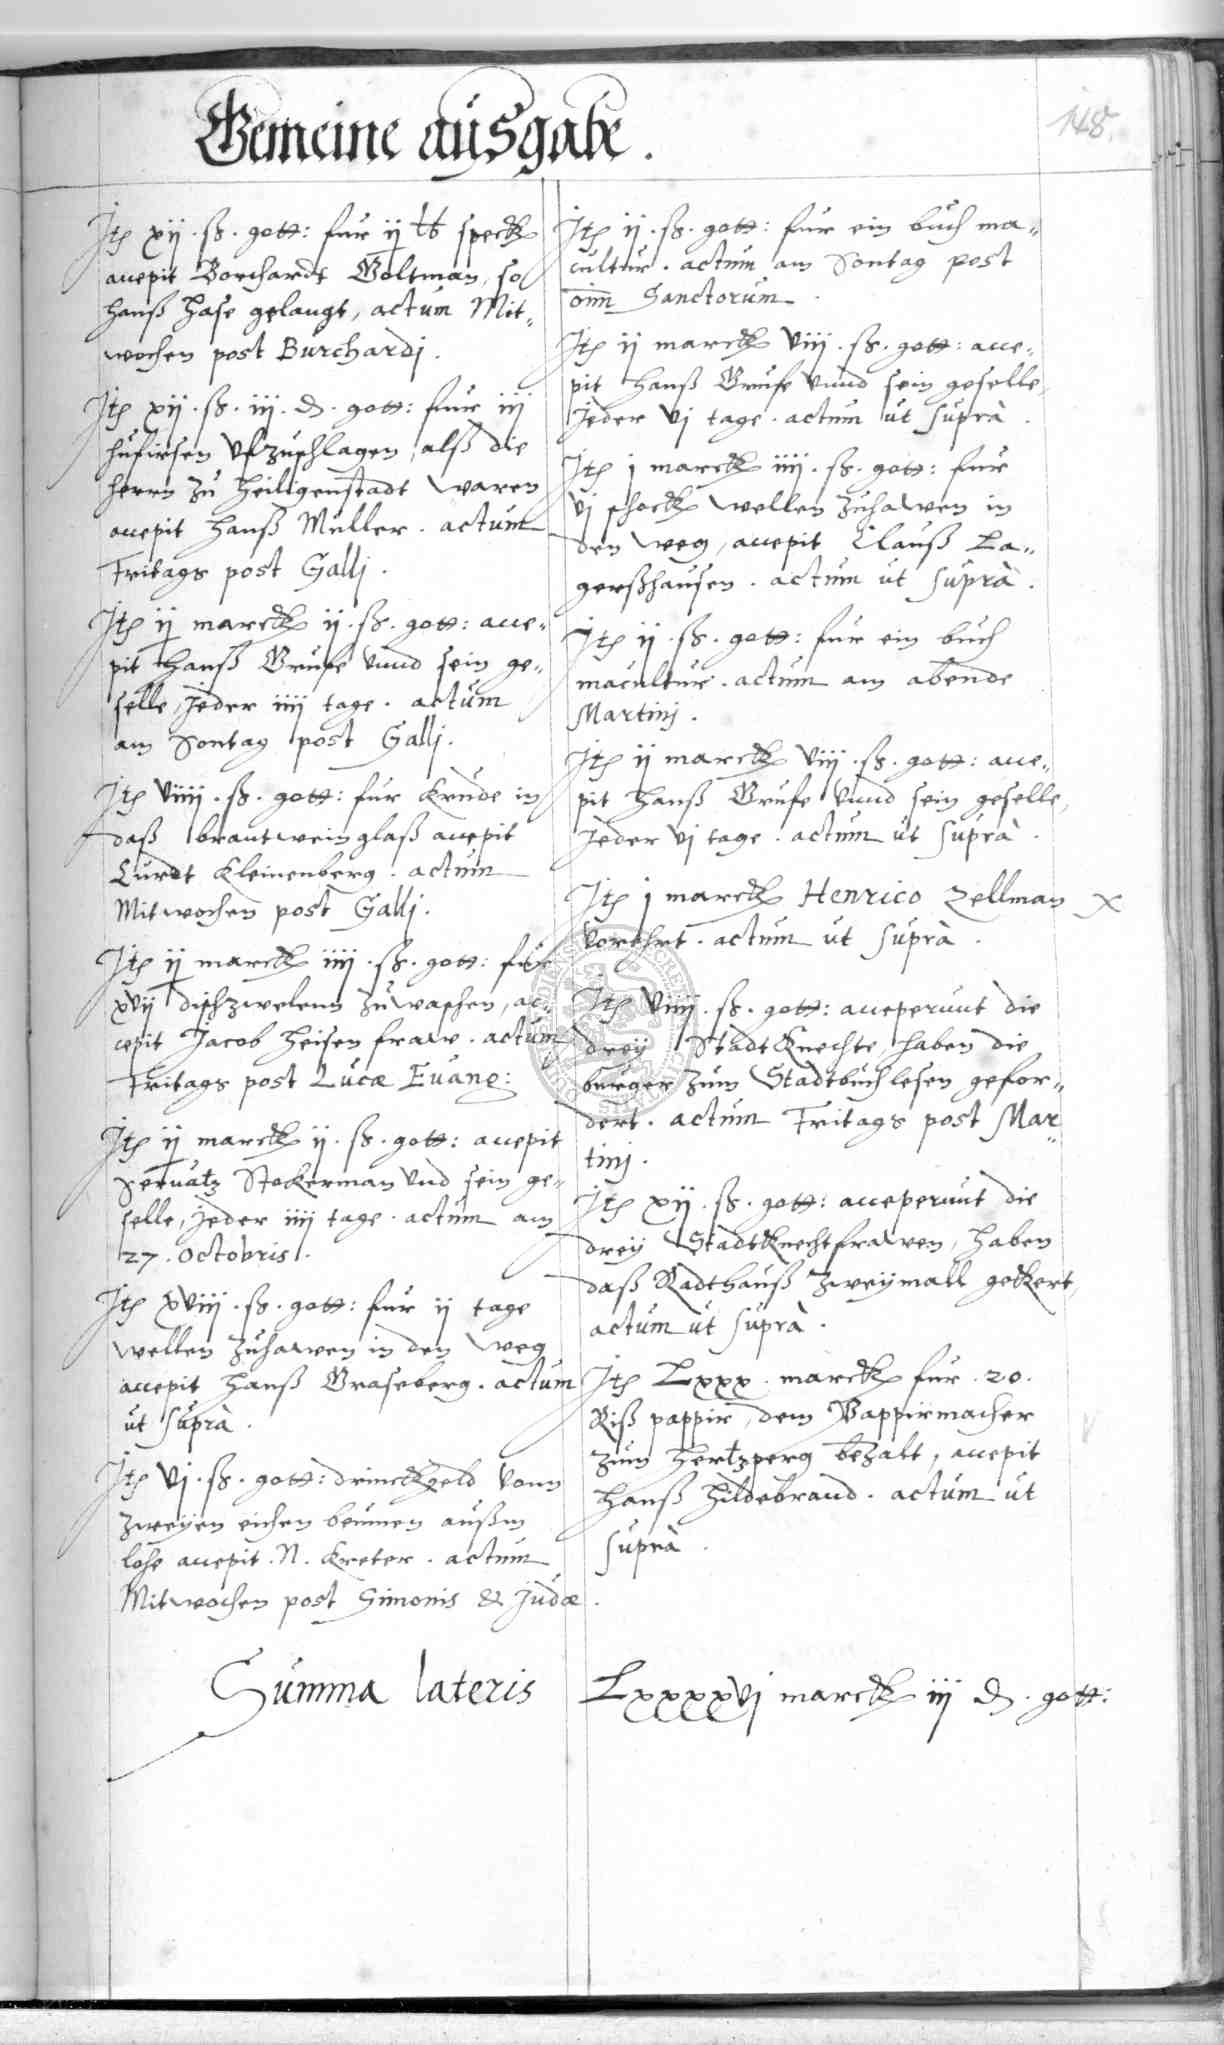 148.
Gemeine ausgabe.
Itē xij . ß . gott: fur ij ℔ speck
accepit Borchardt Boltman, so
hanß hase gelangt, actum Mit„
wochen post Burchardj.
Itē xij . ß . iij . ₰ . gott: fur iij
hufeisen ufzuschlagen, alß die
herrn zu heiligenstadt waren
accepit hanß Muller . actum
Fritags post Gallj.
Itē ij marck ij . ß . gott: acce„
pit hanß Grufe vnnd sein ge„
selle, Jeder iiij tage . actum
am Sontag post Gallj.
Itē viiij . ß . gott: fur krude in
daß brantwein glaß accepit
Curdt Kleinenberg . actum
Mitwochen post Gallj.
Itē ij marck iiij . ß . gott: fur
xvij dischzwelenn zuwaschen, ac„
cepit Jacob heisen fraw . actum
Fritags post Lucæ Euang:
Itē ij marck ij . ß . gott: accepit
Seruatz Stokerman vnd sein ge„
selle, Jeder iiij tage . actum am
27 . octobris.
Itē xviij . ß . gott: fur ij tage
wellen zuhawen in den weg
accepit hanß Graseberg . actum
ut suprà.
Itē vj . ß . gott: drinckgeld vonn
zweyen eichen beumen außm
lohe accepit . N . kreter . actum
Mitwochen post Simonis & Judæ.
Itē ij . ß . gott: fur ein buch ma„
cultur . actum am Sontag post
oīm Sanctorum.
Itē ij marck viij . ß . gott: acce„
pit hanß Grufe vnnd sein geselle,
Jeder vj tage . actum ut suprà.
Itē j marck iiij . ß . gott: fur
vj schock wellen zuhawen in
den weg, accepit Clauß La„
gerßhausen . actum ut suprà.
Itē ij . ß . gott: fur ein buch
macultur . actum am abende
Martinj.
Itē ij marck viij . ß . gott: acce„
pit hanß Grufe vnnd sein geselle,
Jeder vj tage . actum ut suprà.
Itē j marck Henrico Zellman
vorehrt . actum ut suprà.
Itē viiij . ß . gott: acceperunt die
drey Stadtknechte, haben die
burger zum Stadtbuchlesen gefor„
dert . actum Fritags post Mar„
tinj.
Itē xij . ß . gott: acceperunt die
drey Stadtknechtfrawen, haben
daß Radthauß zweymall gekert,
actum ut suprà.
Itē Lxxx . marck fur . 20 .
Riß pappir, dem Pappirmacher
zum hertzperg bezalt, accepit
hanß hildebrand . actum ut
suprà.
Summa lateris Lxxxxvj marck iij ₰ . gott: